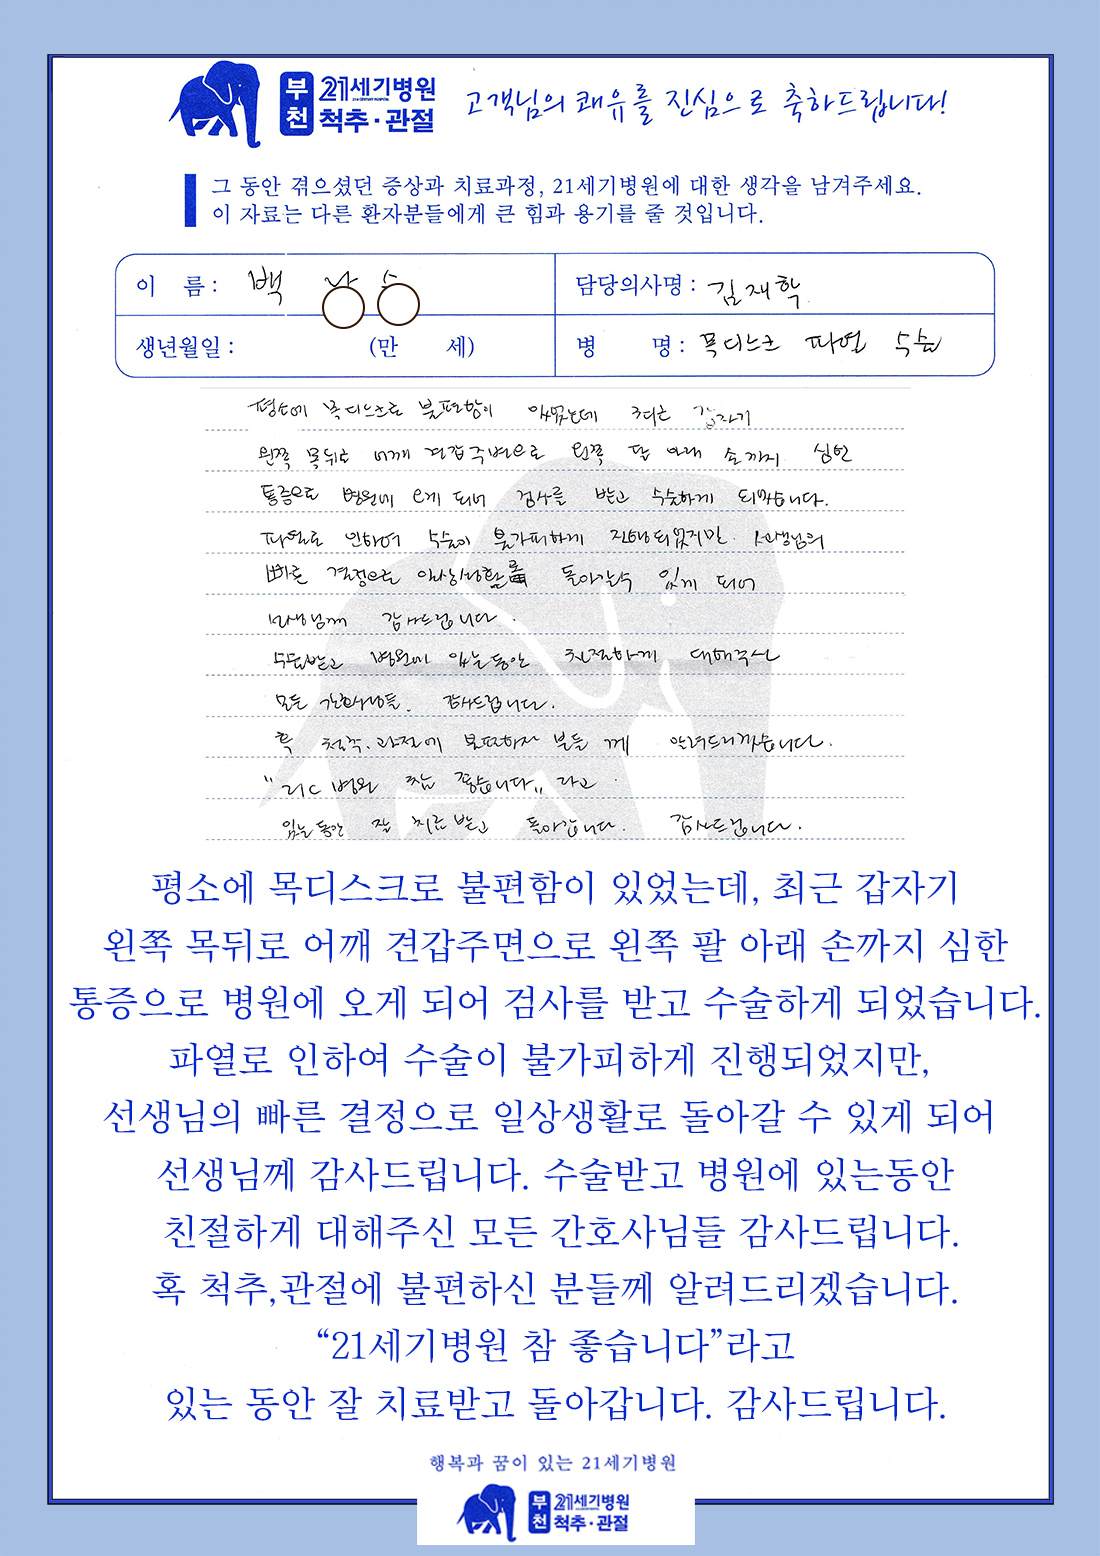 부천 21세기병원 척추·관절
21 CENTURY HOSPITAL
고객님의 쾌유를 진심으로 축하드립니다!
그 동안 겪으셨던 증상과 치료과정, 21세기병원에 대한 생각을 남겨주세요.
이 자료는 다른 환자분들에게 큰 힘과 용기를 줄 것입니다.
이 름 : 백
담당의사명 : 김재학
생년월일 : (만 세)
병 명 : 목디스크 파열 수술
평소에 목디스크로 불편함이 있었는데 최근 갑자기
왼쪽 목뒤로 어깨 견갑주변으로 왼쪽 팔 아래 손까지 심한
통증으로 병원에 오게 되어 검사를 받고 수술하게 되었습니다.
파열로 인하여 수술이 불가피하게 진행되었지만 선생님의
빠른 결정으로 일상생활로 돌아갈수 있게 되어
선생님께 감사드립니다.
수술받고 병원에 있는동안 친절하게 대해주신
모든 간호사님들. 감사드립니다.
혹 척추.관절에 불편하신 분들 께 알려드리겠습니다.
"21C 병원 참 좋습니다" 라고
있는 동안 잘 치료 받고 돌아갑니다. 감사드립니다.
평소에 목디스크로 불편함이 있었는데, 최근 갑자기
왼쪽 목뒤로 어깨 견갑주면으로 왼쪽 팔 아래 손까지 심한
통증으로 병원에 오게 되어 검사를 받고 수술하게 되었습니다.
파열로 인하여 수술이 불가피하게 진행되었지만,
선생님의 빠른 결정으로 일상생활로 돌아갈 수 있게 되어
선생님께 감사드립니다. 수술받고 병원에 있는동안
친절하게 대해주신 모든 간호사님들 감사드립니다.
혹 척추,관절에 불편하신 분들께 알려드리겠습니다.
“21세기병원 참 좋습니다”라고
있는 동안 잘 치료받고 돌아갑니다. 감사드립니다.
행복과 꿈이 있는 21세기병원
부천 21세기병원 척추·관절